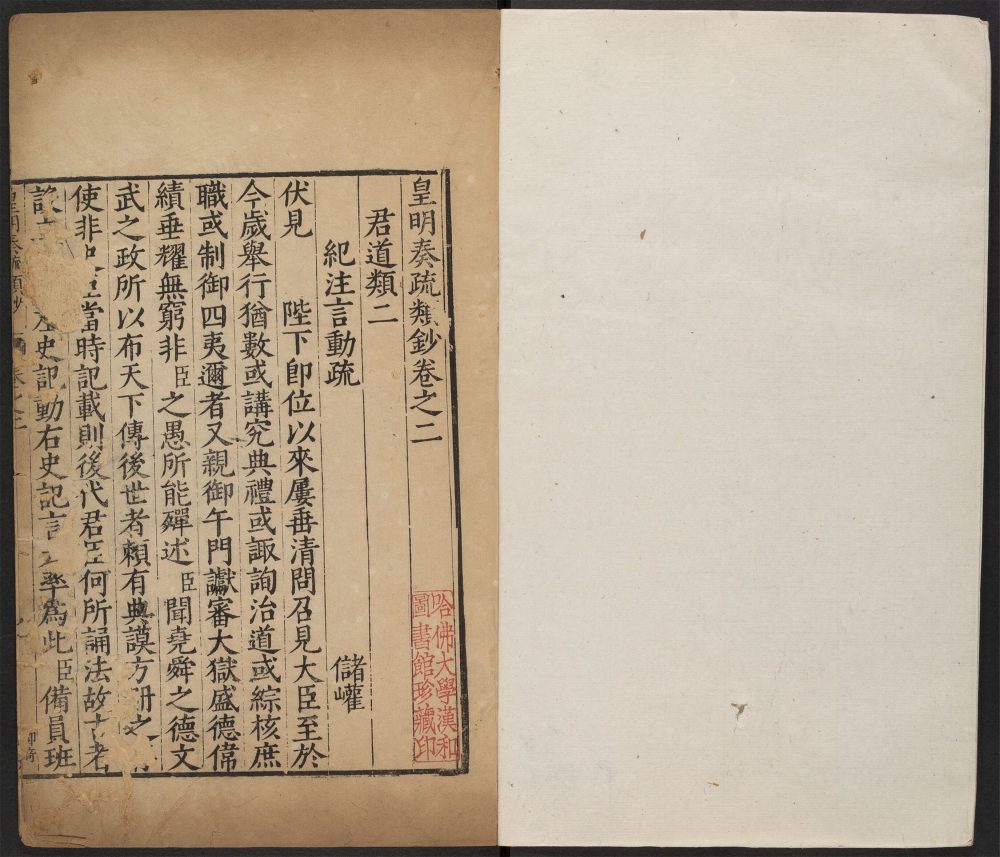 皇明奏疏類鈔卷之二
君道類二
紀注言動疏
儲巏
伏見 陛下即位以來屢垂清問召見大臣至於
今歲舉行猶數或講究典禮或諏詢治道或綜核庶
職或制御四夷邇者又親御午門讞審大獄盛德偉
績垂耀無窮非臣之愚所能殫述臣聞堯舜之德文
武之政所以布天下傳後世者賴有典謨方冊之
使非 當時記載則後代君臣何所誦法故古者
史記動右史記言 率為此臣備員班
皇明奏疏類鈔 卷之二
哈佛大學漢和
圖書館珍藏印